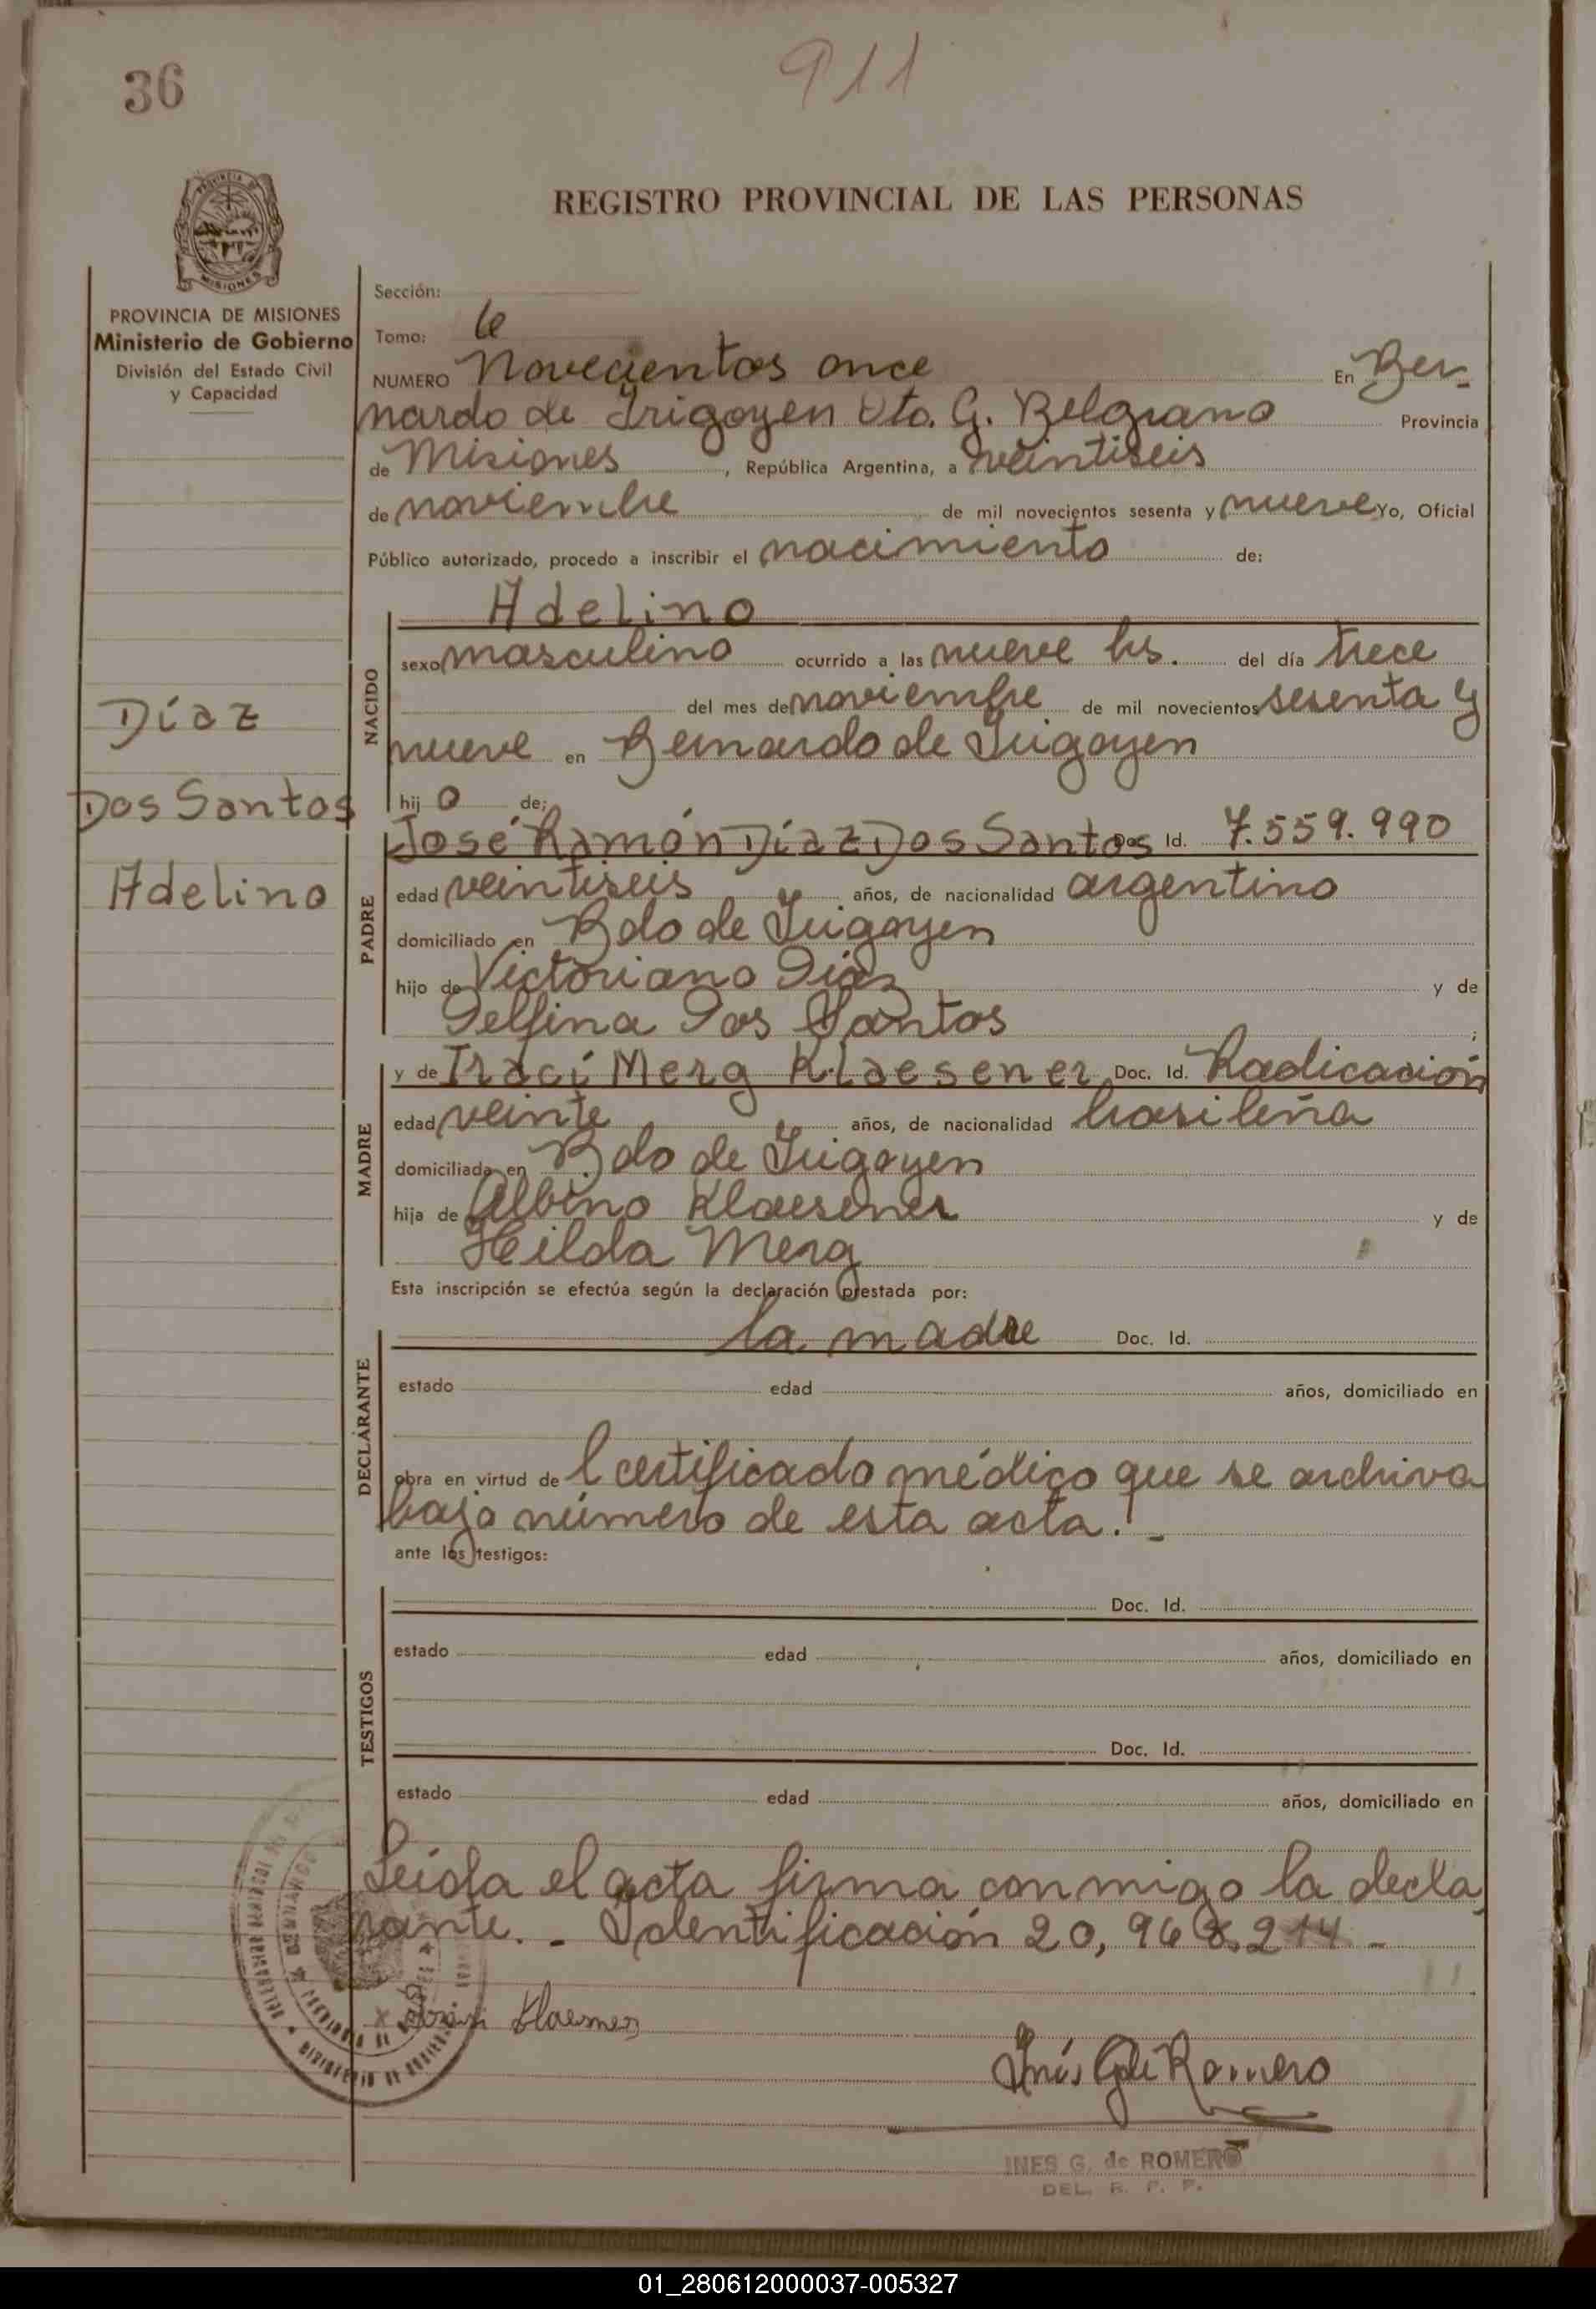 36
911
REGISTRO PROVINCIAL DE LAS PERSONAS
PROVINCIA DE MISIONES
Ministerio de Gobierno
División del Estado Civil
y Capacidad
Díaz
Dos Santos
Adelino
Sección:
Tomo: 6
NUMERO Novecientos once En Ber-
nardo de Irigoyen Dto. G. Belgrano Provincia
de Misiones, República Argentina, a veintiseis
de noviembre de mil novecientos sesenta y nueve Yo, Oficial
Público autorizado, procedo a inscribir el nacimiento de:
NACIDO
Adelino
sexo masculino ocurrido a las nueve hs. del día trece
del mes de noviembre de mil novecientos sesenta y
nueve en Bernardo de Irigoyen
hij o de:
PADRE
José Ramón Díaz Dos Santos Doc. Id. 7.559.990
edad veintiseis años, de nacionalidad argentino
domiciliado en Bdo de Irigoyen
hijo de Victoriano Díaz y de
Delfina Dos Santos ;
MADRE
y de Iraci Merg Klaesener Doc. Id. Radicación
edad veinte años, de nacionalidad brasileña
domiciliada en Bdo de Irigoyen
hija de Albino Klaesener y de
Hilda Merg
Esta inscripción se efectúa según la declaración prestada por:
DECLARANTE
la madre Doc. Id.
estado edad años, domiciliado en
obra en virtud de l certificado médico que se archiva
bajo número de esta acta.-
ante los testigos:
TESTIGOS
Doc. Id.
estado edad años, domiciliado en
Doc. Id.
estado edad años, domiciliado en
Leída el acta firma conmigo la decla
rante.- Identificación 20,968.214.-
Inés G de Romero
INES G. de ROMERO
DEL. R. P. P.
01_280612000037-005327